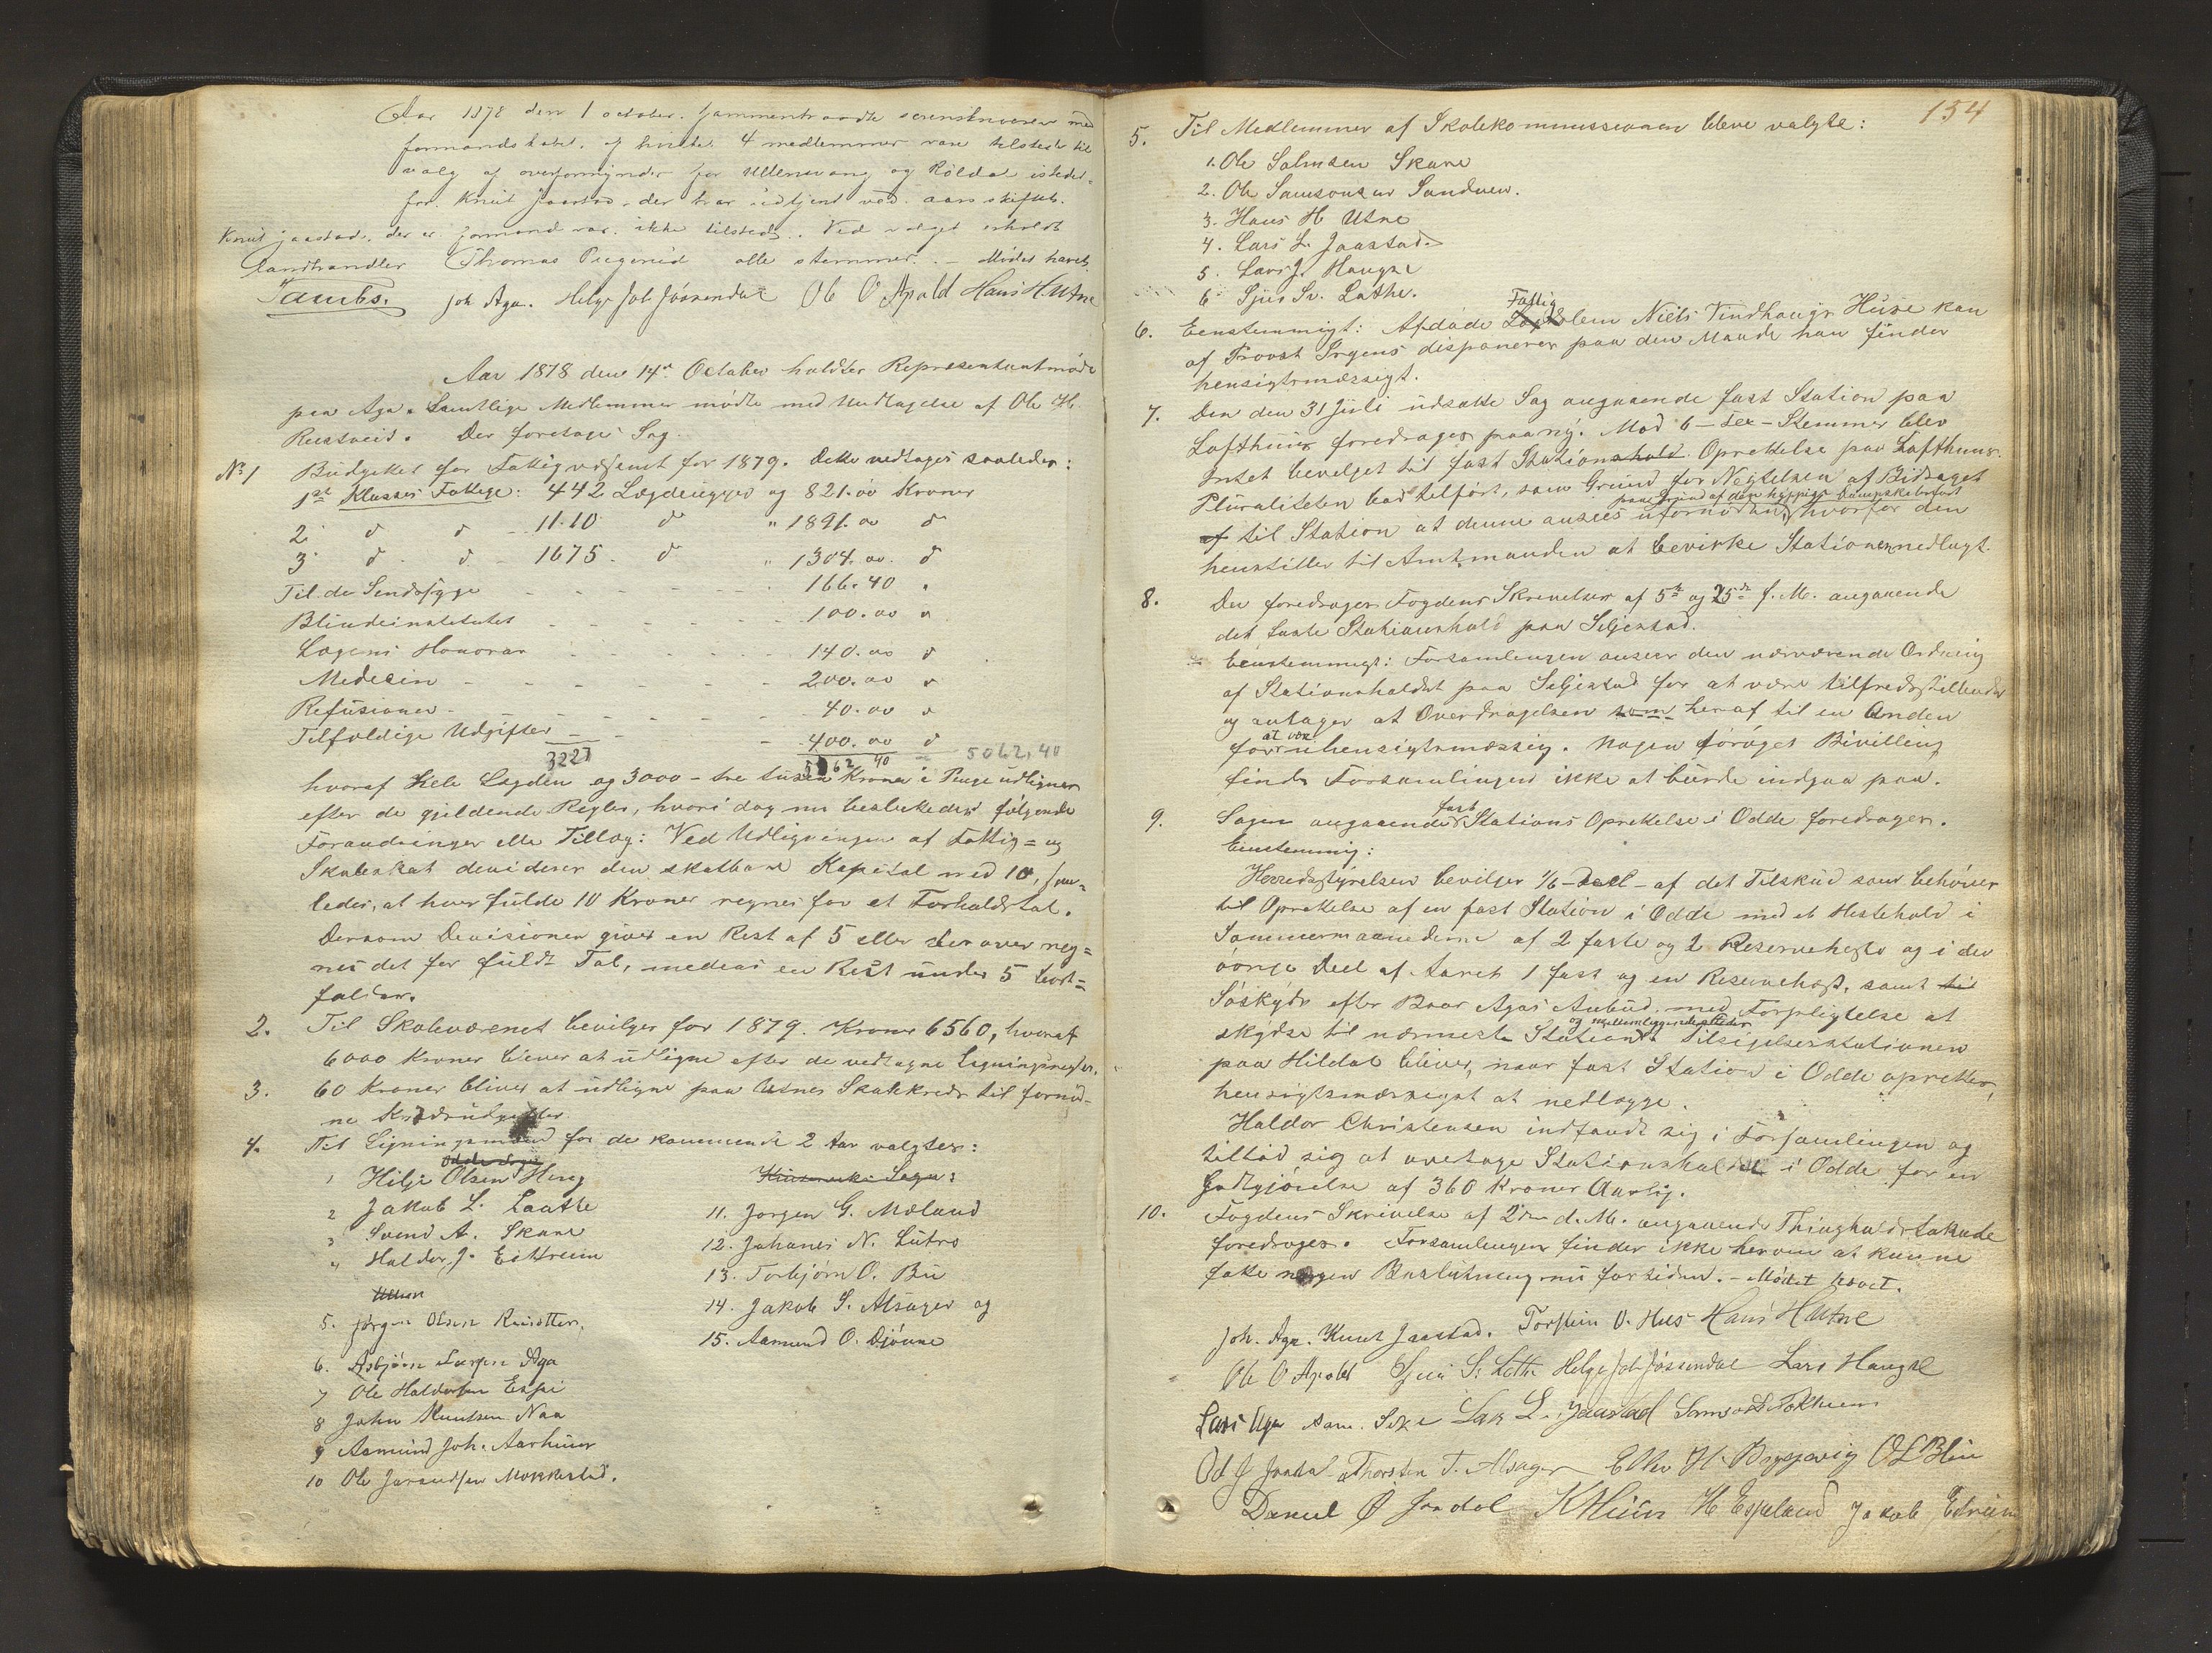 Aar 1878 den 1 october. Sammentraadte sorenskriveren med
formandskabet, af hvilke 4 medlemmer vare tilstede til
valg af overformynder for Ullensvang og Røldal istedet=
for Knut Jaastad, der har udtjent ved aarsskiftet.
Knut Jaastad, der er formand var ikke tilstede. Ved valget erholdt
landhandler Thomas alle stemmer. – Mødet hævet.
Tambs. Joh Aga. Helge Joh Jøssendal Ole O Apold Hans H Utne
Aar 1878 den 14de October holdtes Repræsentantmøde
paa Aga. Samtlige Medlemmer mødte med Undtagelse af Ole H.
Reisæter. Der foretoges Sag
No 1 Budgettet for Fattigvæsenet for 1879. Dette vedtages saaledes:
1ste Klasses Fattige: 442 Lægdeuger og 821.00 Kroner
2 d d - 1110 d " 1891.00 d
3 d d - 1675 d " 1304.00 d
Til de Sindssyge - - - 166.40 "
Blindeinstitutet - - - 100.00 "
Lægens Honorar - - - 140.00 d
Medecin - - - 200.00 "
Refusioner - - - 40.00 "
Tilfældige Udgifter - - - 400.00 d
3227 5062 40 5062,40
hvoraf hele Legden og 3000 – tre tusen Kroner i Penge udlignes
efter de gjældende Regler, hvori dog nu besluttedes følgende
Forandringer eller Tillæg: Ved Udligningen af Fattig= og
Skoleskat devideres den skatbare Kapital med 10, saa=
ledes, at hver fulde 10 Kroner regnes for et Forholdstal.
Dersom Devisionen giver en Rest af 5 eller derover reg=
nes det for fuldt Tal, medens en Rest under 5 bort=
falder.
2. Til Skolevæsenet bevilges for 1879 Kroner 6560, hvoraf
6000 Kroner bliver at udligne efter de vedtagne Ligningsregler.
3. 60 Kroner bliver at udligne paa Utnes Skolekreds til fornød-
ne Kredsudgifter
4. Til Ligningsmænd for de kommende 2 Aar valgtes:
Odde Sogn
1 Helje Olsen
2 Jakob L. Laatte
3 Svend A. Skare
4 Haldor J. Eittreim
Ullen
5. Jørgen Olsen Reisæter.
6. Asbjørn Larsen Aga
7 Ole Haldorsen Espe
8 John Knutsen Naa
9 Aamund Joh. Aarhuus
10 Ole Mokkestad.
Kinsarvik Sogn:
11. Jørgen G. Mæland
12. Johanes N. Lutro
13. Torbjørn O. Bu
14. Jakob S. Alsager og
15. Aamund O. Djønne
154
5. Til Medlemmer af Skolekommissionen bleve valgte:
1. Ole Salmsen Skare
2. Ole Samsonsen Sandven.
3. Hans H. Utne
4. Lars L. Jaastad.
5. Lars J. Haugse
6 Sjur Sv. Lothe.
6. Eenstemmigt: Afdøde Fattiglem Niels Vindhaugs Huse kan
af Provst disponeres paa den Maade han finder
hensigtsmæssigt.
7. Den den 31 Juli udsatte Sag angaaende fast Station paa
Lofthuus foredrages paany. Mod 6 – sex – Stemmer blev
Intet bevilget til fast Stationshold Oprettelse paa Lofthuus.
Pluraliteten bad tilført, som Grund for Negtelsen af Bidraget
paa Grund af den hyppige Dampskibsfart
af til Station at denne ansees ufornøden, hvorfor den
henstiller til Amtmanden at bevirke Stationen nedlagt.
8. Der foredroges Fogdens Skrivelser af 5te og 25de f. M. angaaende
det faste Stationshold paa Seljestad.
Eenstemmigt: Forsamlingen anseer den nærværende Ordning
af Stationsholdet paa Seljestad for at være tilfredsstillende
og antager at Overdragelsen som heraf til en Anden
for at være uhensigtsmæssig. Nogen forøget Bevilling
finder Forsamlingen ikke at burde indgaa paa.
9. Sagen angaaende fast Stations Oprettelse i Odde foredroges.
Eenstemmig:
Herredsstyrelsen bevilger 1/6-Deel- af det Tilskud som behøves
til Oprettelse af en fast Station i Odde med et Hestehold i
Sommermaanederne af 2 faste og 2 Reserveheste og i den
øvrige Deel af Aaret 1 fast og en Reservehest, samt til
Søskyds efter Baar Agas Anbud, med Forpligtelse at
skydse til nærmeste Station og mellemliggende Steder. Tilsigelsesstationen
paa Hildal bliver, naar fast Station i Odde oprettes,
hensigtsmæssigst at nedlægge.
Haldor Christensen indfandt sig i Forsamlingen og
tilbød sig at overtage Stationsholdet i Odde for en
Godtgjørelse af 360 Kroner Aarlig.
10. Fogdens Skrivelse af 2den d. M. angaaende Thingholdslokale
foredroges. Forsamlingen finder ikke herom at kunne
fatte nogen Beslutning nu for tiden. – Mødet hævet.
Joh. Aga. Knut Jaastad. Torstein O. Hus Hans H Utne
Ole O Apold Sjur S. Lothe Helge Joh Jøssendal Lars Haugse
Lars Aga Aam. Sexe Lars L. Jaastad Samson Tokheim
Od J Jordal Thorsten T. Alsager H. O L Bleie
Daniel Ø Jordal K Huus H Espeland Jakob Eitreim